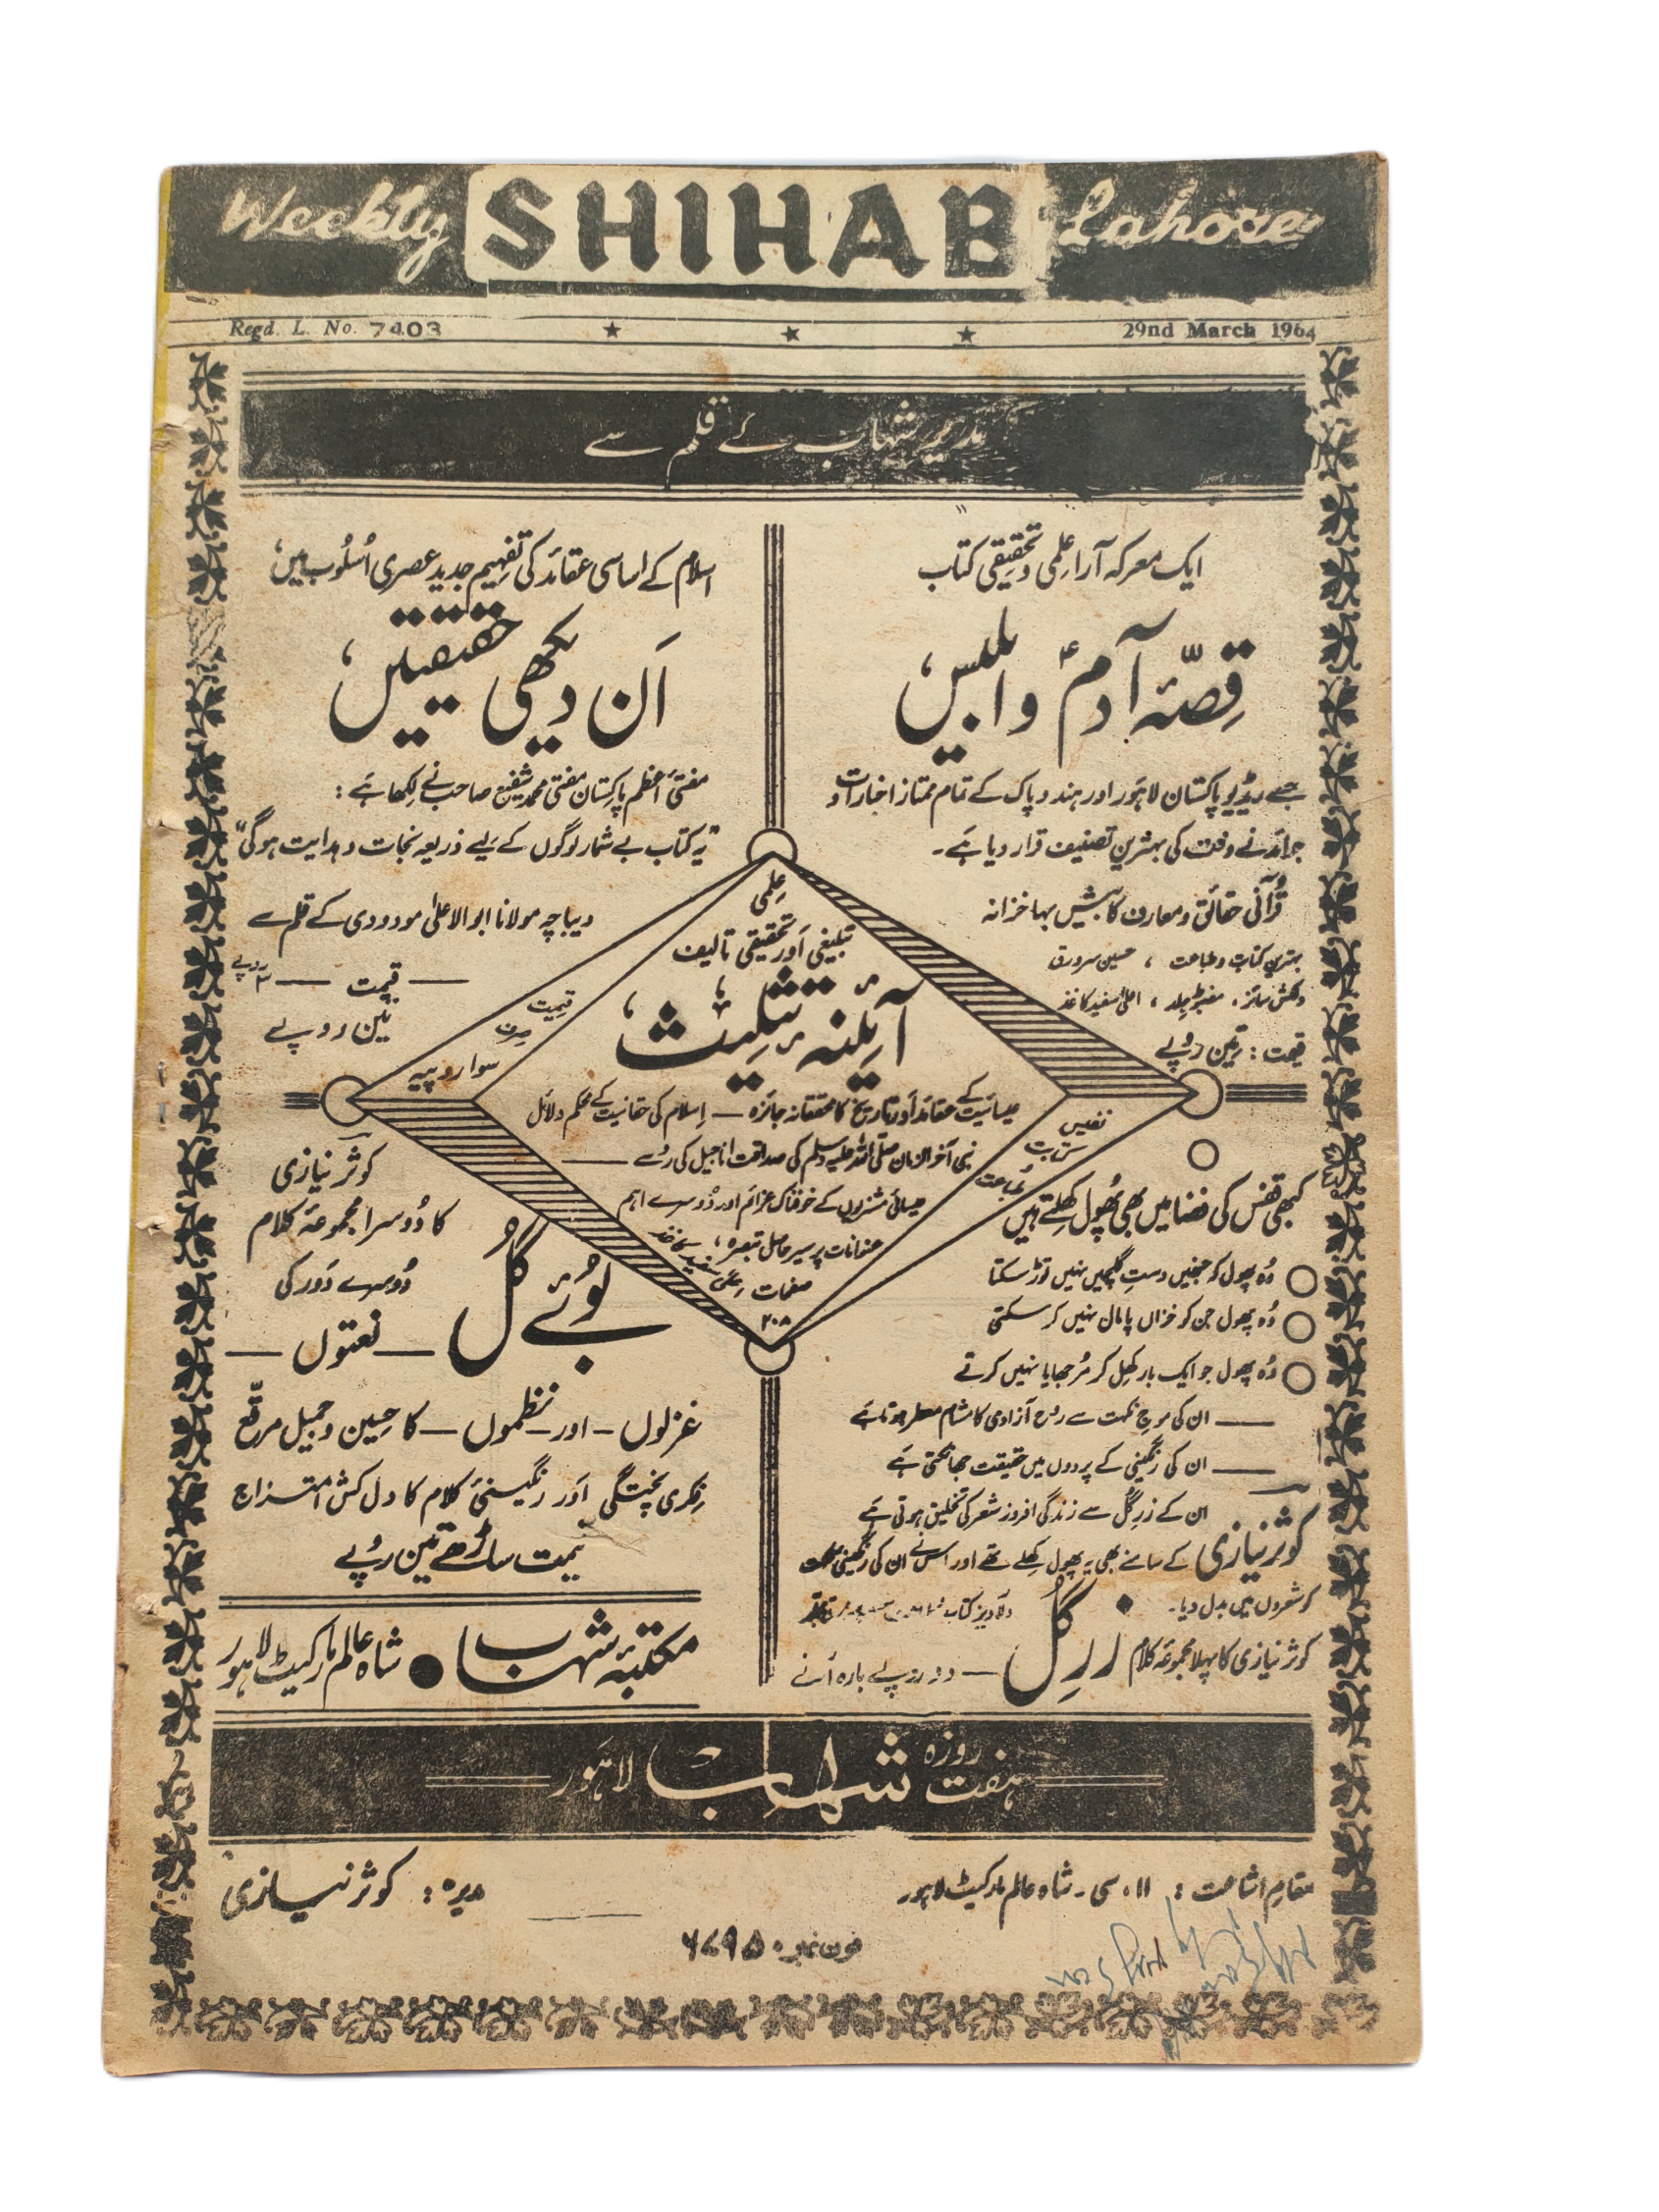 Weekly SHIHAB Lahore
Regd. L. No. 7403 ★ ★ ★ 29nd March 1964
مدیر شہاب کے قلم سے
ایک معرکہ آرا علمی و تحقیقی کتاب
قصّۂ آدمؑ و ابلیس،
جسے ریڈیو پاکستان لاہور اور ہند و پاک کے تمام ممتاز اخبارات و
جرائد نے وقت کی بہترین تصنیف قرار دیا ہے۔
قرآنی حقائق و معارف کا بیش بہا خزانہ
بہترین کتابت و طباعت ، حسین سرورق
دلکش سائز ، مضبوط جلد ، اعلیٰ سفید کاغذ
قیمت : تین روپے
اسلام کے اساسی عقائد کی تفہیم جدید عصری اُسلُوب میں،
اَن دیکھی حقیقتیں،
مفتیٔ اعظم پاکستان مفتی محمد شفیع صاحب نے لکھا ہے :
"یہ کتاب بے شمار لوگوں کے لیے ذریعہ نجات و ہدایت ہوگی"
دیباچہ مولانا ابوالاعلیٰ مودودی کے قلم سے
— قیمت — ۳ روپے
تین روپے
علمی
تبلیغی اور تحقیقی تالیف
آئینۂ تثلیث،
عیسائیت کے عقائد اور تاریخ کا محققانہ جائزہ — اسلام کی حقانیت کے محکم دلائل
نبی آخر الزمان صلی اللہ علیہ وسلم کی صداقت اناجیل کی رُو سے —
عیسائی مشنریوں کے خوفناک عزائم اور دُوسرے اہم
عنوانات پر سیر حاصل تبصرہ ،
صفحات
۲۰۸
قیمت صرف سوا روپیہ
نفیس کتابت طباعت
کبھی قفس کی فضا میں بھی پُھول کھلتے ہیں
وُہ پھول کو جنہیں دستِ گلچیں نہیں توڑ سکتا
وُہ پھول جن کو خزاں پامال نہیں کر سکتی
وُہ پھول جو ایک بار کھل کر مُرجھایا نہیں کرتے
— ان کی موجِ نکہت سے روحِ آزادی کا مشام معطر ہوتا ہے
— ان کی رنگینی کے پردوں میں حقیقت جھانکتی ہے
ان کے زرِ گُل سے زندگی افروز شعر کی تخلیق ہوتی ہے
کوثر نیازی کے سامنے بھی یہ پھول کھلے تھے اور اس نے ان کی رنگینی
کو شعروں میں بدل دیا۔
دلآویز کتابت
کوثر نیازی کا پہلا مجموعہ کلام زرِ گل — دو روپے بارہ آنے
کوثر نیازی
کا دُوسرا مجموعۂ کلام
بُوئے گُل
دُوسرے دَور کی
— نعتوں —
غزلوں — اور — نظموں — کا حسین و جمیل مرقّع
فکری پختگی اَور رنگینیٔ کلام کا دل کش امتزاج
قیمت ساڑھے تین روپے
مکتبۂ شہاب ● شاہ عالم مارکیٹ لاہور
ہفت روزہ شہاب لاہور
مقامِ اشاعت : ۱۱۔ سی ۔ شاہ عالم مارکیٹ لاہور
مدیر : کوثر نیازی
فون نمبر ۶۷۹۵